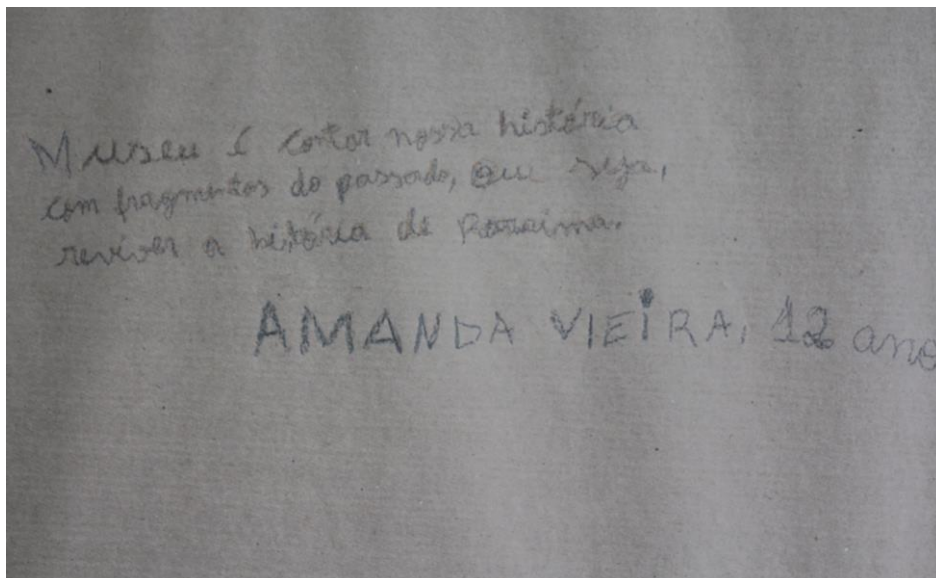 Museu é contar nossa história
com fragmentos do passado, ou seja,
reviver a história de Roraima.
AMANDA VIEIRA, 12 ano